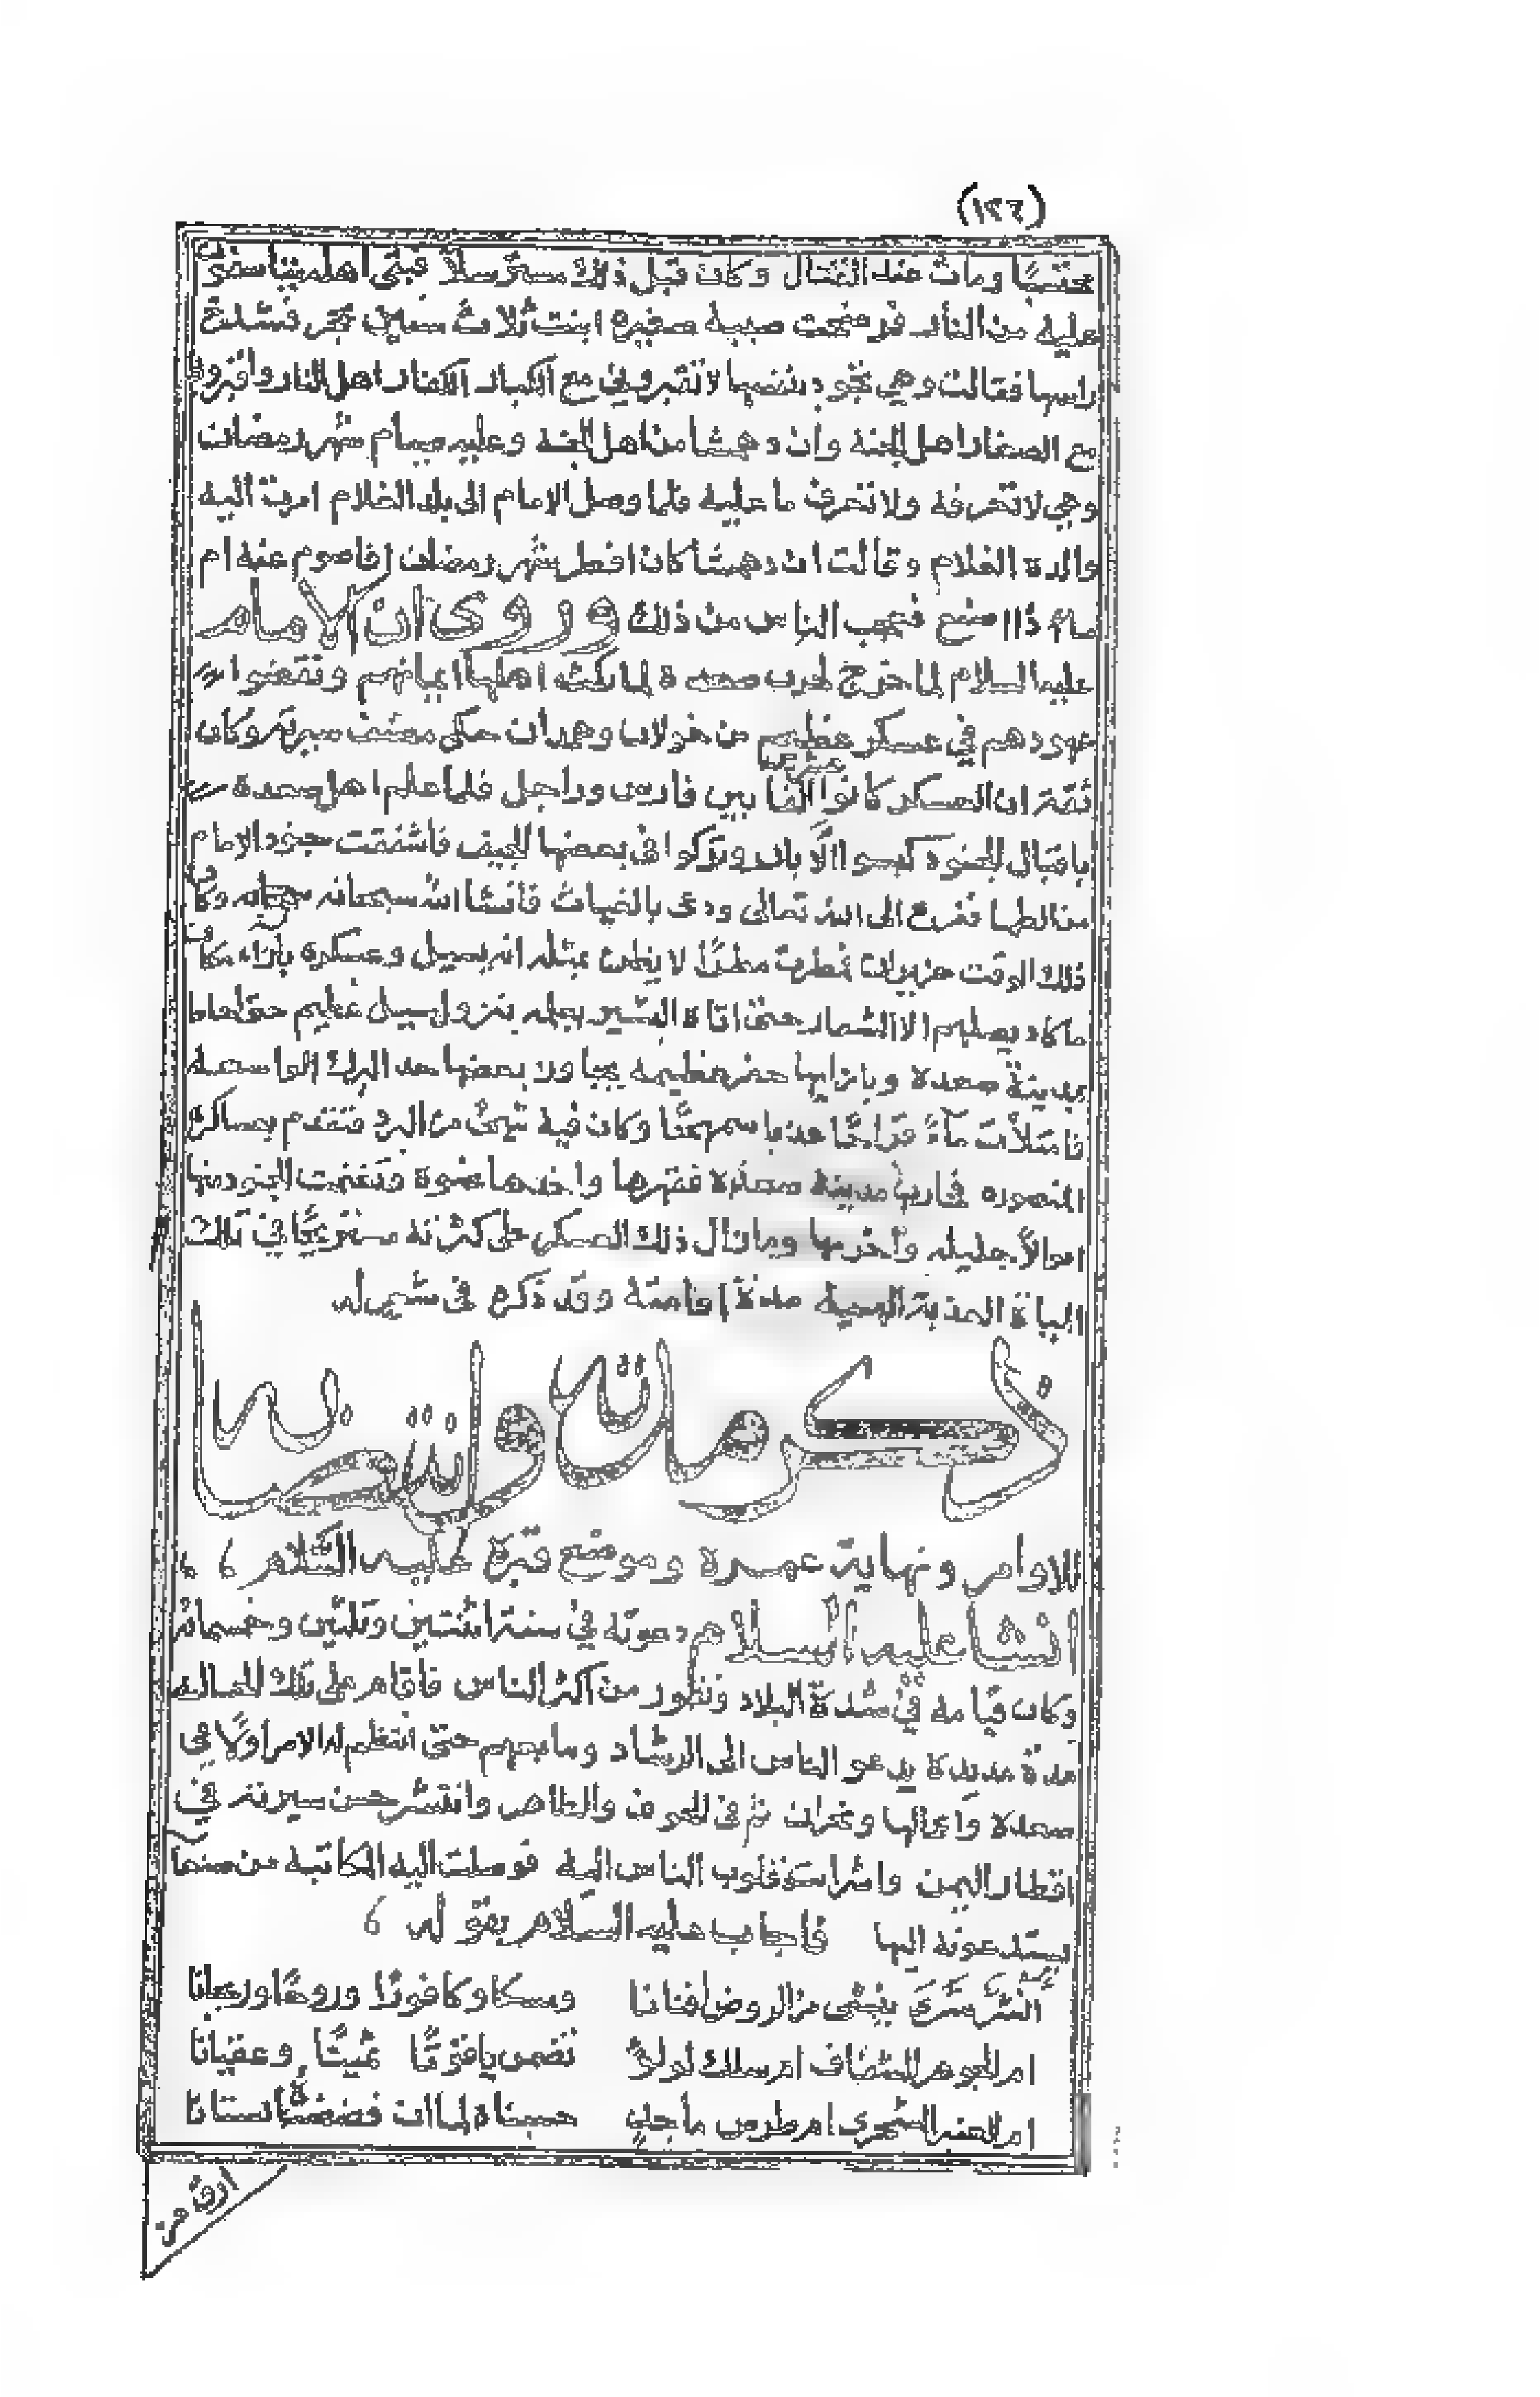 (١٢٦)
محتسبًا ومات عند القتال وكان قبل ذلك مسترسلا فبقى اهله يتاسفون
عليه من النار فرفعت صبية صغيرة ابنت ثلاث سنين
راسها فقالت وهي تجود بنفسها لا تقبروني مع الكبار الكفار اهل النار واقبروني
مع الصغار اهل الجنة وان دهشا من اهل الجنة وعليه صيام شهر رمضان
وهي لا تعرفه ولا تعرف ما عليه ولما وصل الامام الى بلد الغلام امرت اليه
والدة الغلام وقالت ان دهشا كان افطر شهر رمضان افاصوم عنه ام
ماذا اصنع فعجب الناس من ذلك وروى ان الامام
عليه السلام لما خرج لحرب صعدة لما نكث اهلها ايمانهم ونقضوا
عهودهم في عسكر عظيم من خولان وهمدان حكى مصنف سيرته وكان
ثقة ان العسكر كانوا الفا بين فارس وراجل فلما علم اهل صعدة
باقبال الجنود كبسوا الآبار وتركوا في بعضها الجيف فاشفقت جنود الامام
من الظما ففزع الى الله تعالى ودعى بالغياث فانشا الله سبحانه سحابه وكان
ذلك الوقت حزيران فمطرت مطرًا لا يظن بمثله انه يسيل وعسكره بازاء مكان
ما كاد يصلهم الا الشعار حتى اتاه البشير بجله بنزول سيل عظيم حتى احاط
بمدينة صعدة وبازايها حفر عظيمه يجاور بعضها حد البرك الواسعه
فامتلات ماء قراحًا عذبا سمهجًا وكان فيه شيئ من البرد فتقدم بعساكره
المنصوره فحارب مدينة صعدة فقهرها واخذها عنوة وتغنمت الجنود منها
اموالًا جليله واخربها وما زال ذلك العسكر على كثرته مسترعيًا في تلك
المياه العذبة الهنية مدة اقامته وقد ذكره في شعر له
ذكر مدته وانتصابه
للاوامر ونهاية عمره وموضع قبره عليه السلام
انشا عليه السلام دعوته في سنة اثنتين وثلثين وخمسمائه
وكان قيامه في شدة البلاد ونفور من اكثر الناس فاقام على تلك الحالة
مدة مديدة يدعو الناس الى الرشاد وما يجبهم حتى انتظم له الامر اولًا في
صعدة واعمالها ونجران ثم في الجوف والظاهر وانتشر حسن سيرته في
اقطار اليمن واشرابت قلوب الناس اليه فوصلت اليه المكاتبة من صنعا
يستدعونه اليها فاجاب عليه السلام بقوله
انشر سرى ينثنى من الروض افنانا ومسكا وكافورًا وروحًا وريحانا
ام الجوهر الشفاف ام سلك لولؤ تضمن ياقوتًا ثمينًا وعقيانا
ام العنبر الشحرى ام طرس ماجد حسبناه لما ان فضضناه بستانا
ارق من